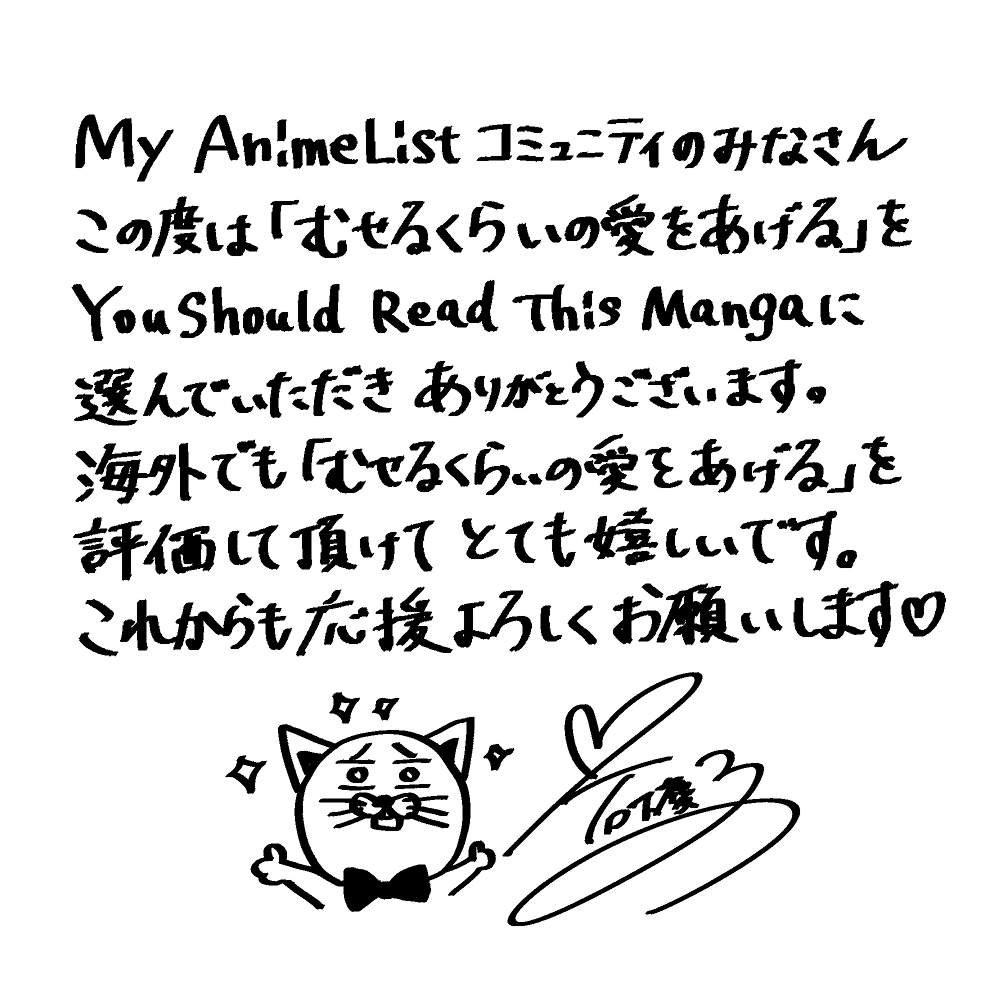 My AnimeList コミュニティのみなさん
この度は「むせるくらいの愛をあげる」を
You Should Read This Mangaに
選んでいただき ありがとうございます。
海外でも「むせるくらいの愛をあげる」を
評価して頂けて とても嬉しいです。
これからも応援よろしくお願いします♡